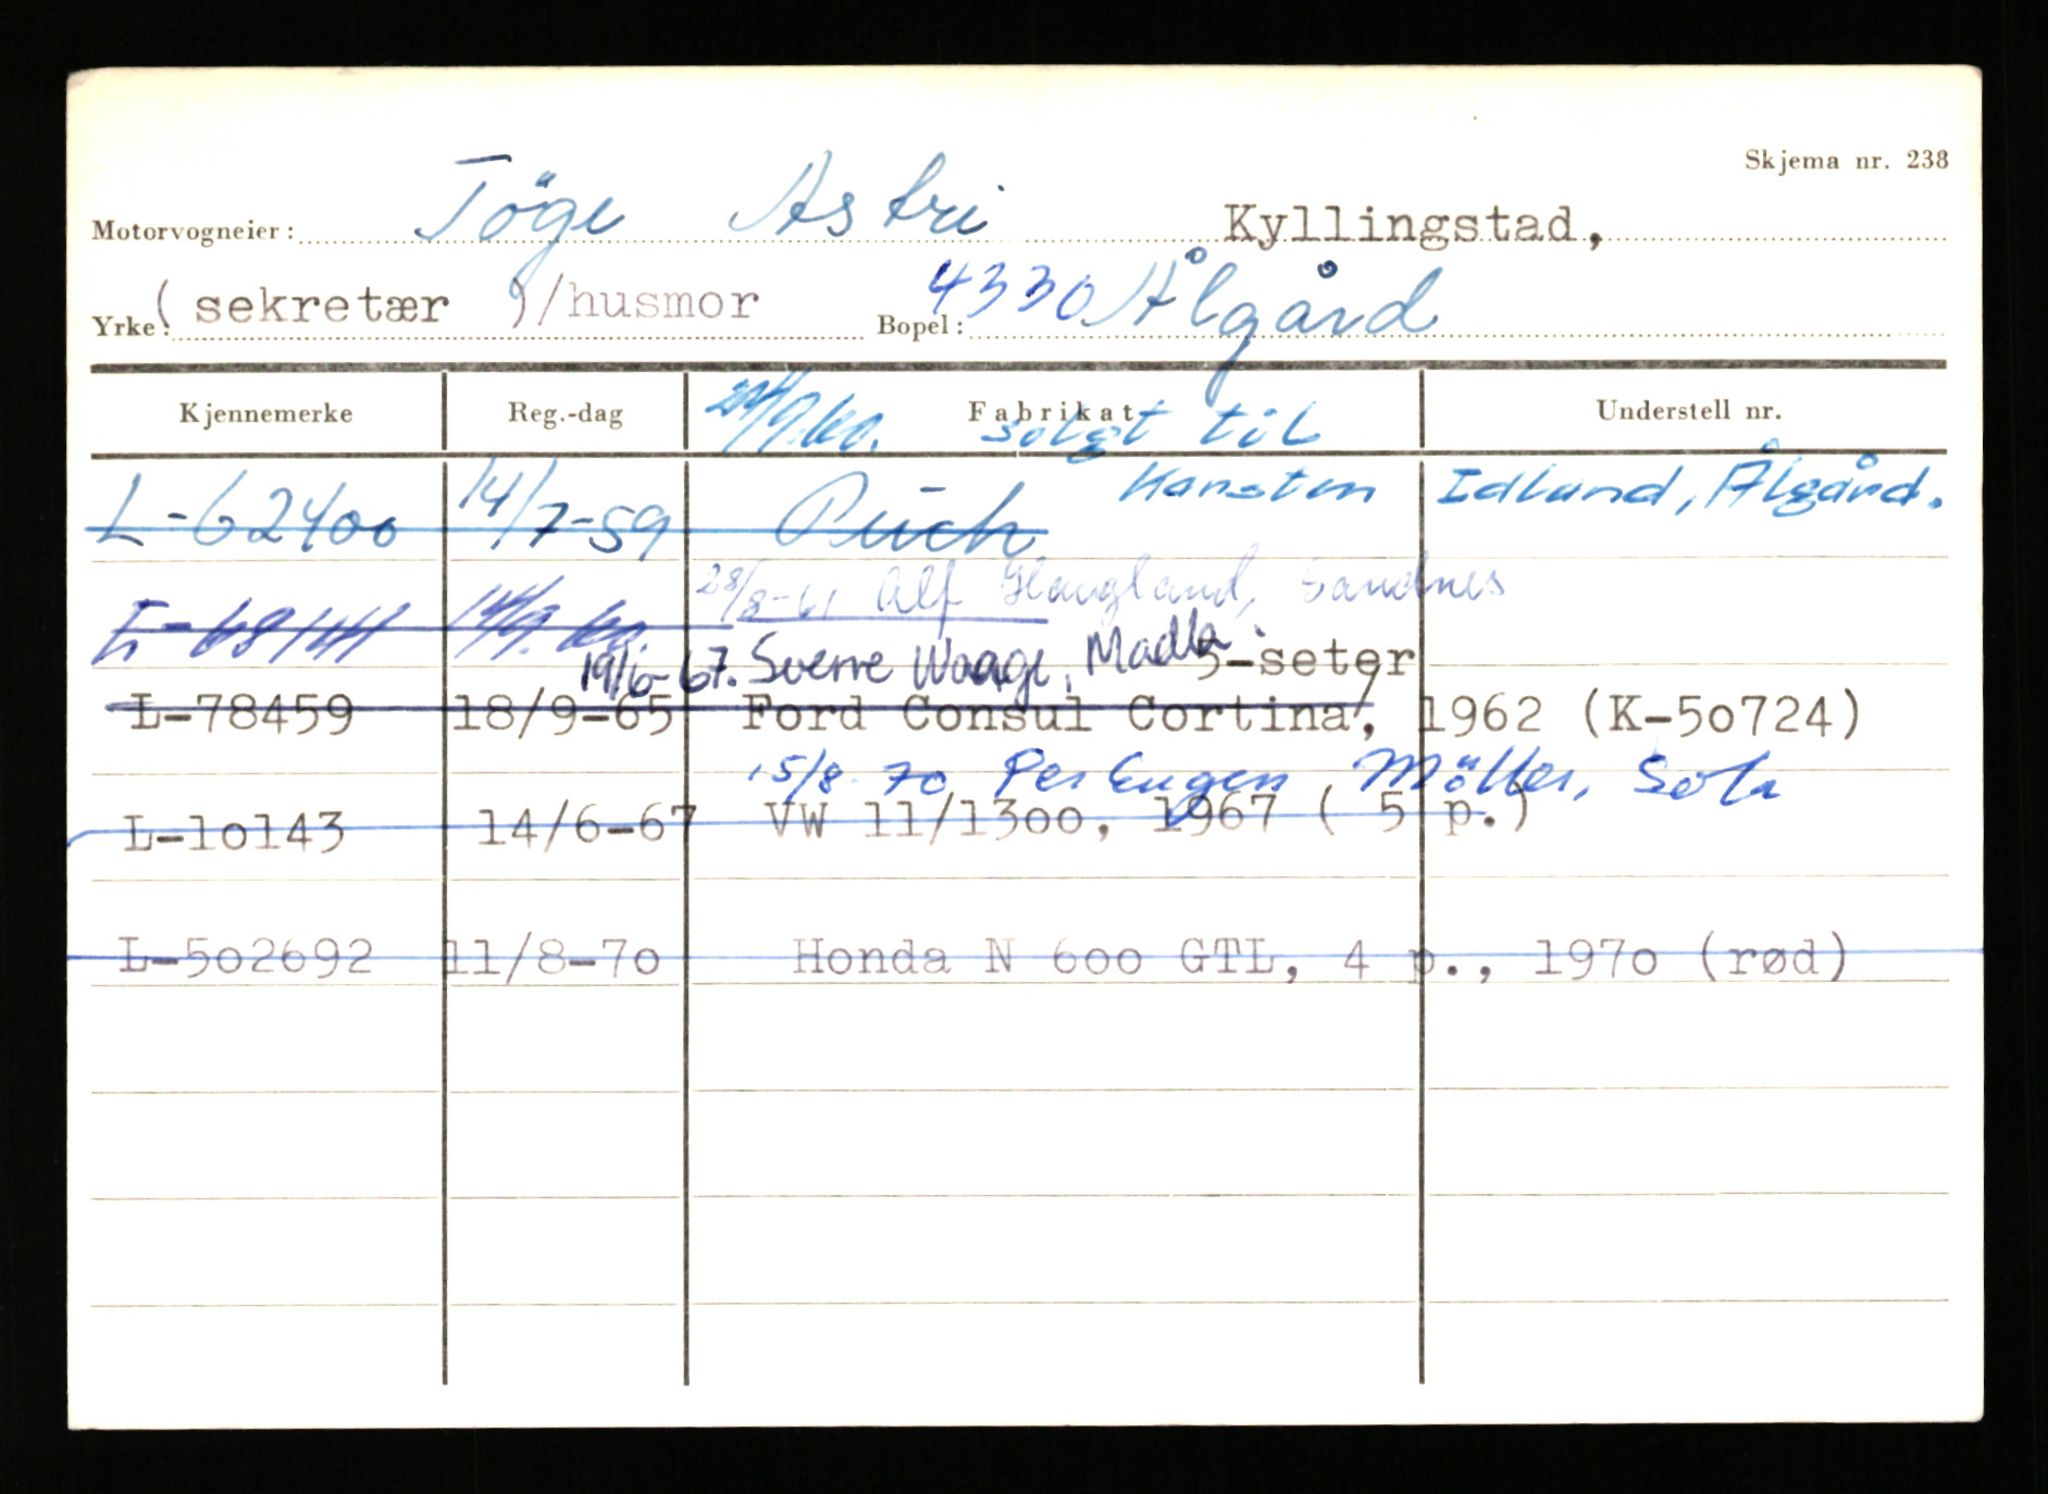 Skjema nr. 238
Motorvogneier: Töge Astri Kyllingstad,
Yrke: ( sekretær )/husmor Bopel: 4330 Ålgård
Kjennemerke Reg.-dag Fabrikat Understell nr.
24/9.60. solgt til
Karsten Idland, Ålgård.
L-62400 14/7-59 Puch
28/8-61 Alf Haugland, Sandnes
L-68141 14/9.60.
19/6-67. Sverre Waage, Madla. 5-seter
L-78459 18/9-65 Ford Consul Cortina, 1962 (K-50724)
15/8 70 Per Eugen Möller, Sola
L-10143 14/6-67 VW 11/1300, 1967 ( 5 p.)
L-502692 11/8-70 Honda N 600 GTL, 4 p., 1970 (rød)